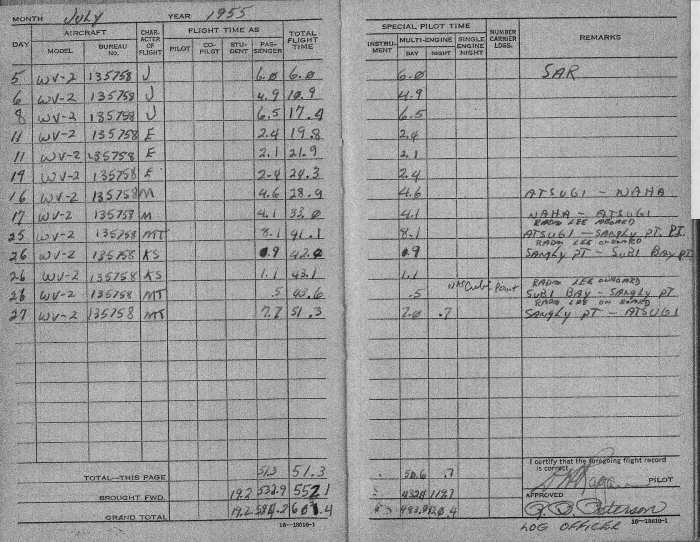 MONTH July YEAR 1955
DAY AIRCRAFT MODEL BUREAU NO. CHARACTER OF FLIGHT FLIGHT TIME AS PILOT CO-PILOT STUDENT PASSENGER TOTAL FLIGHT TIME
5 WV-2 135758 J 6.0 6.0
6 WV-2 135758 J 4.9 10.9
8 WV-2 135758 J 6.5 17.4
11 WV-2 135758 E 2.4 19.8
11 WV-2 135758 E 2.1 21.9
WV-2 135758 E 2.4 24.3
16 WV-2 135758 M 4.6 28.9
17 WV-2 135758 M 4.1 33.0
25 WV-2 135758 MT 8.1 41.1
26 WV-2 135758 KS .9 42.0
26 WV-2 135758 KS 1.1 43.1
26 WV-2 135758 MT .5 43.6
27 WV-2 135758 MT 7.7 51.3
TOTAL—THIS PAGE 51.3 51.3
BROUGHT FWD. 19.2 532.9 552.1
GRAND TOTAL 19.2 584.2 603.4
16—18610-1
SPECIAL PILOT TIME
INSTRUMENT MULTI-ENGINE DAY NIGHT SINGLE ENGINE NIGHT NUMBER CARRIER LDGS. REMARKS
6.0 SAR
4.9
6.5
2.4
2.1
2.4
4.6 ATSUGI - NAHA
4.1 NAHA - ATSUGI
RADM LEE ABOARD
8.1 ATSUGI - SANGLY PT. PI.
RADM LEE ONBOARD
.9 SANGLY PT - SUBI BAY PI
1.1
RADM LEE ONBOARD
.5 NAS Cubi Point SUBI BAY - SANGLY PT
RADM LEE ON BOARD
7.0 .7 SANGLY PT - ATSUGI
I certify that the foregoing flight record is correct.
50.6 .7
PILOT
APPROVED
LOG OFFICER
16—18610-1